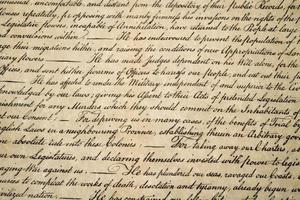 unusual, uncomfortable, and distant from the depository of their Public Records, for
ouses repeatedly, for opposing with manly firmness his invasions on the rights of the
Legislative powers, incapable of Annihilation, have returned to the People at large
and convulsions within. He has endeavoured to prevent the population of
rage their migrations hither, and raising the conditions of new Appropriations of La
He has made Judges dependent on his Will alone, for the
Offices, and sent hither swarms of Officers to harrass our people, and eat out their
He has affected to render the Military independent of and superior to the Civil
knowledged by our laws; giving his Assent to their Acts of pretended Legislation
ishment for any Murders which they should commit on the Inhabitants of
out our Consent: For depriving us in many cases, of the benefits of Trial
English Laws in a neighbouring Province, establishing therein an Arbitrary gov
absolute rule into these Colonies For taking away our Charters, a
our own Legislatures, and declaring themselves invested with power to legis
ging War against us. He has plundered our seas, ravaged our Coasts
naries to compleat the works of death, desolation and tyranny, already begun
vilized nation.